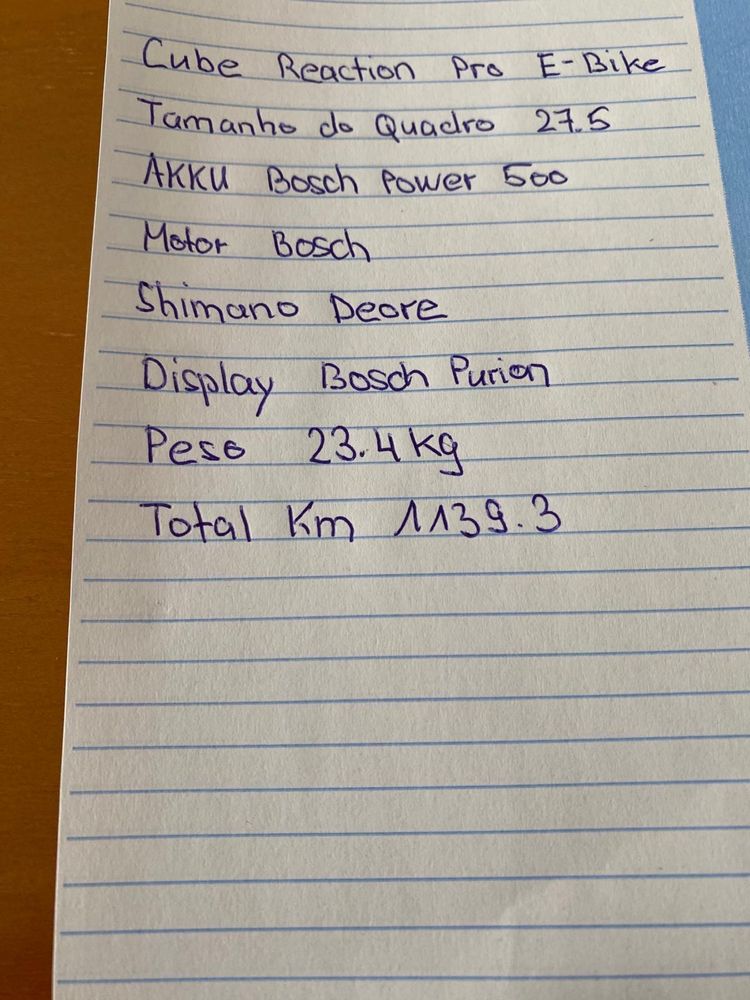 Cube Reaction Pro E-Bike
Tamanho do Quadro 27.5
AKKU Bosch Power 500
Motor Bosch
Shimano Deore
Display Bosch Purion
Peso 23.4 kg
Total Km 1139.3